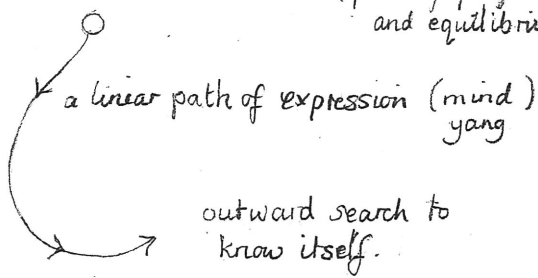 and
a linear path of expression (mind)
yang
outward search to
know itself.